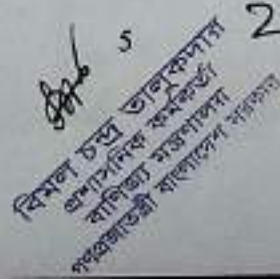 5
2
বিমল চন্দ্র তালুকদার
প্রশাসনিক কর্মকর্তা
বাণিজ্য মন্ত্রণালয়
গণপ্রজাতন্ত্রী বাংলাদেশ সরকার